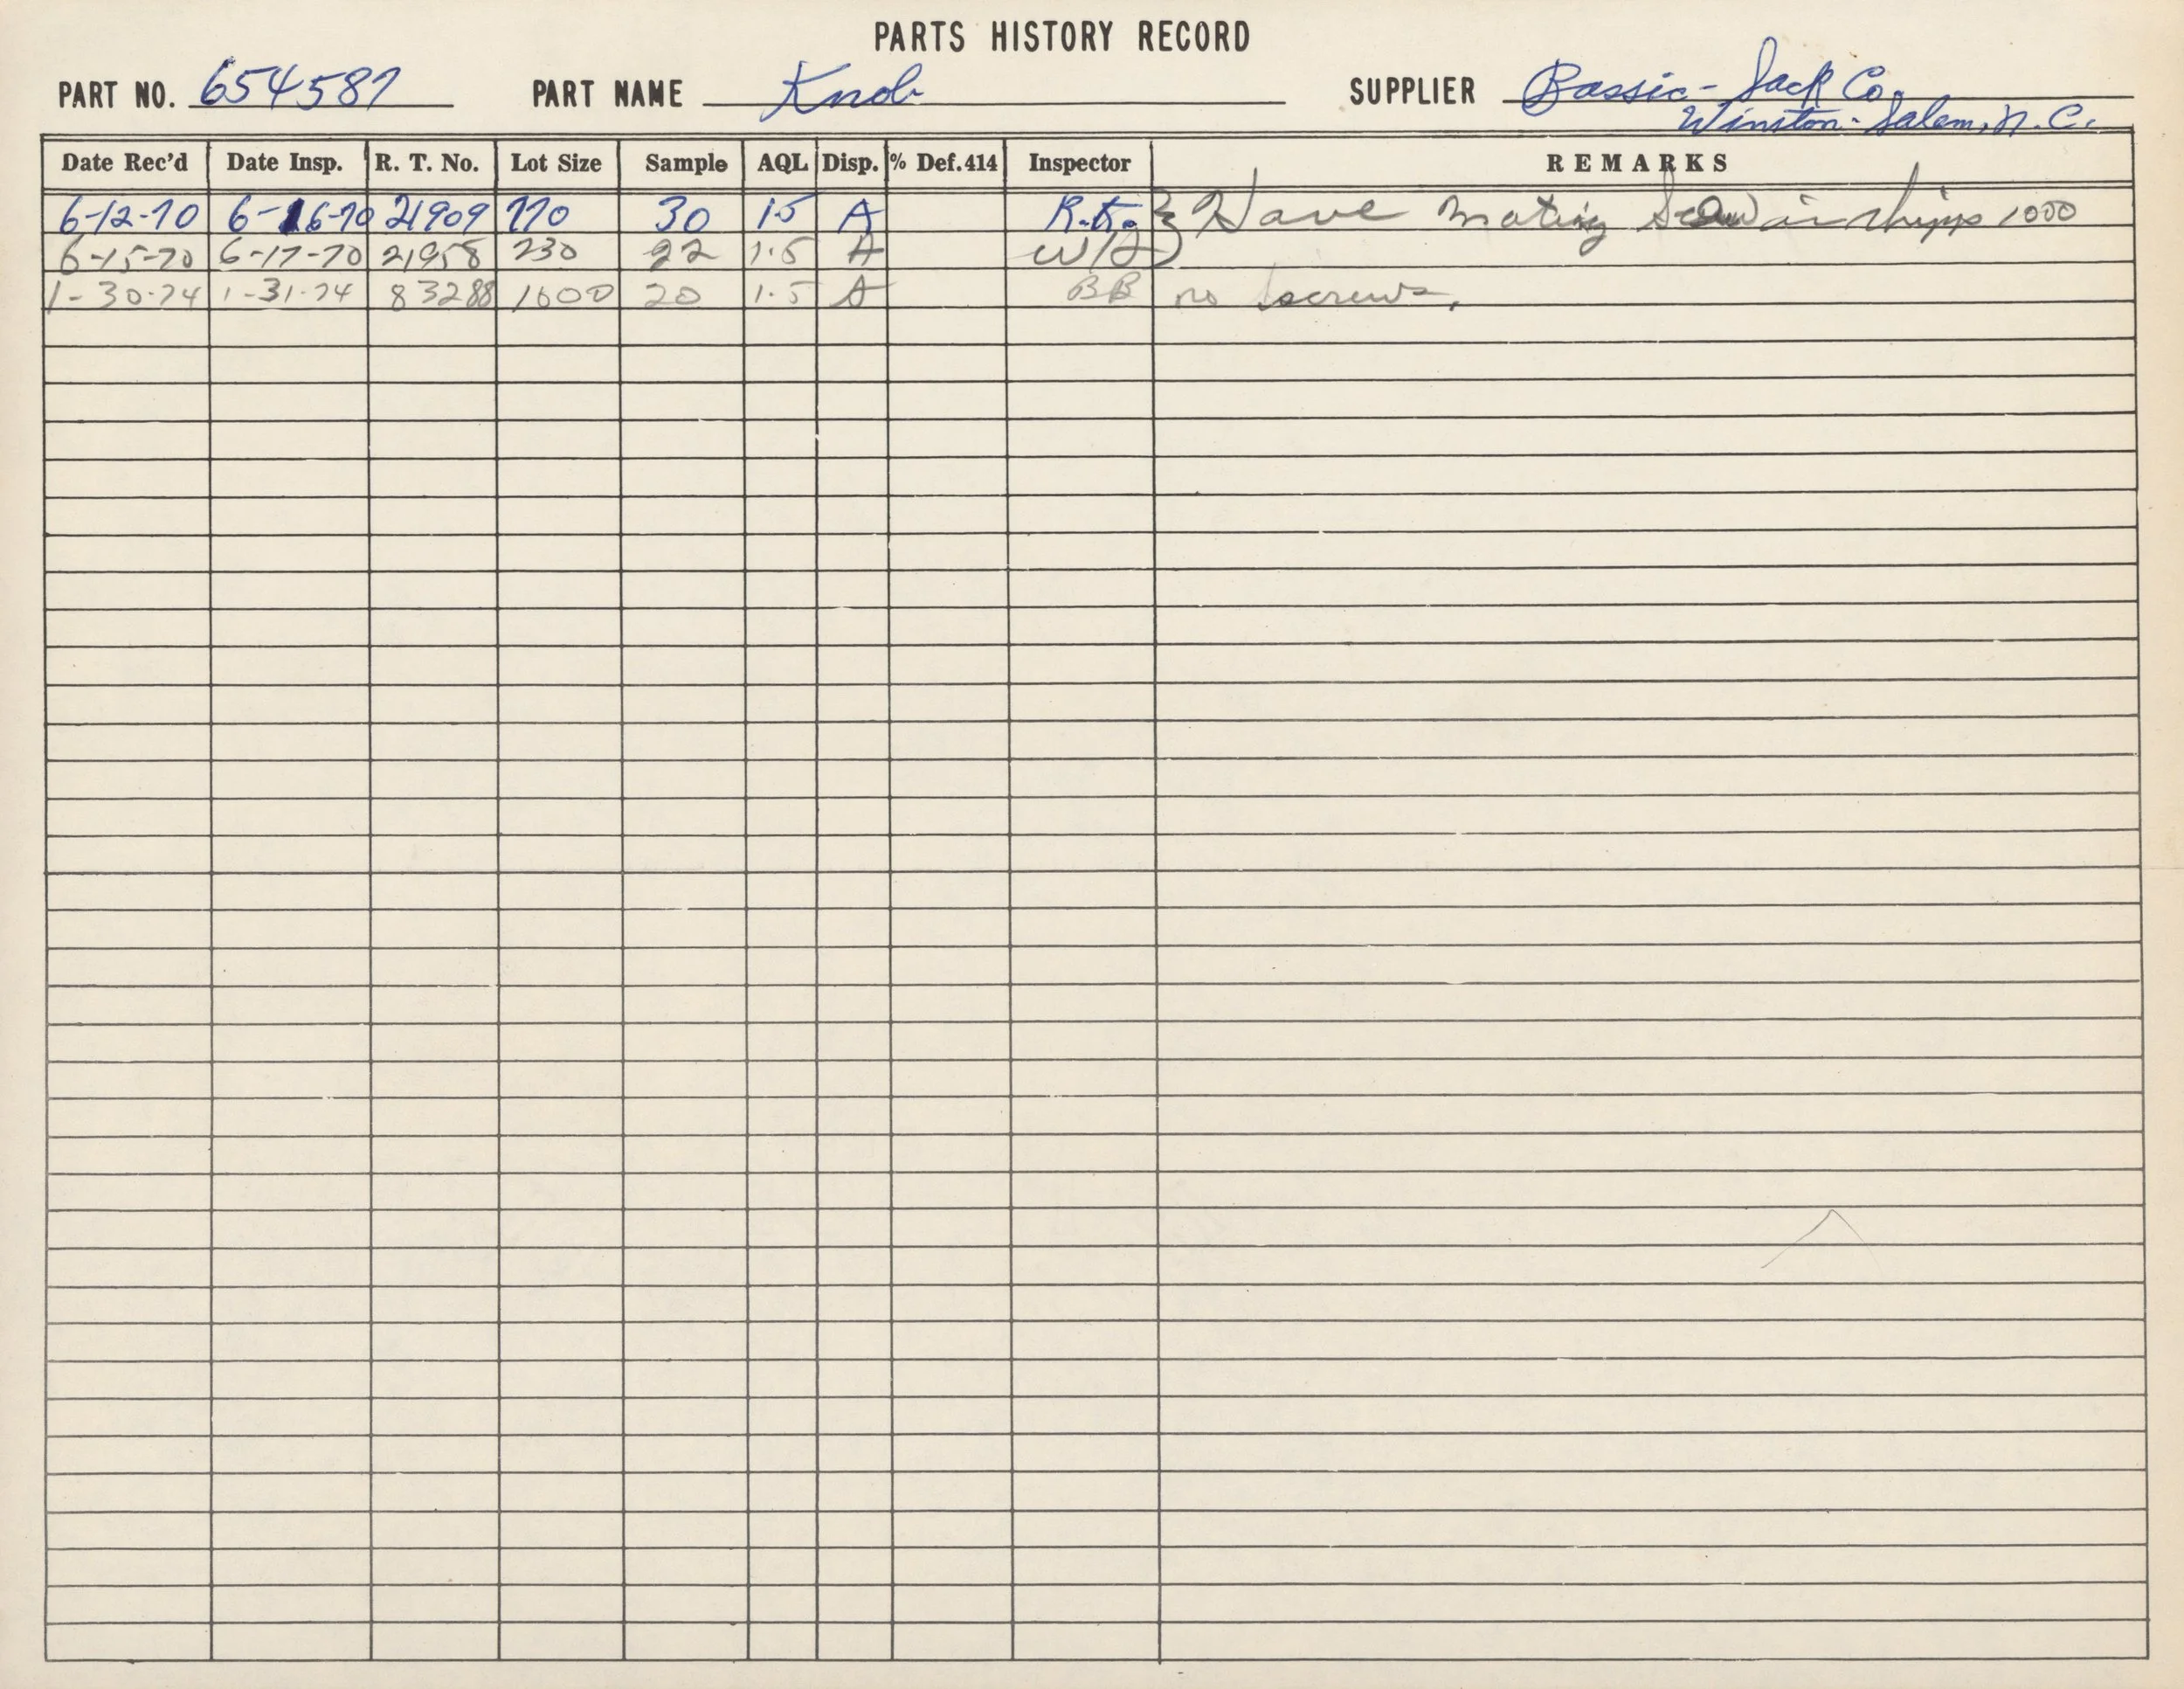 PARTS HISTORY RECORD
PART NO. 654587 PART NAME Knob SUPPLIER Bassic- Jack Co.
Winston-Salem, N.C.
Date Rec'd Date Insp. R. T. No. Lot Size Sample AQL Disp. % Def.414 Inspector REMARKS
6-12-70 6-16-70 21909 770 30 1.5 A R.K. Have mating screw in shipps 1000
6-15-70 6-17-70 21958 230 22 1.5 A
1-30-74 1-31-74 83288 1000 20 1.5 A BB no screws.